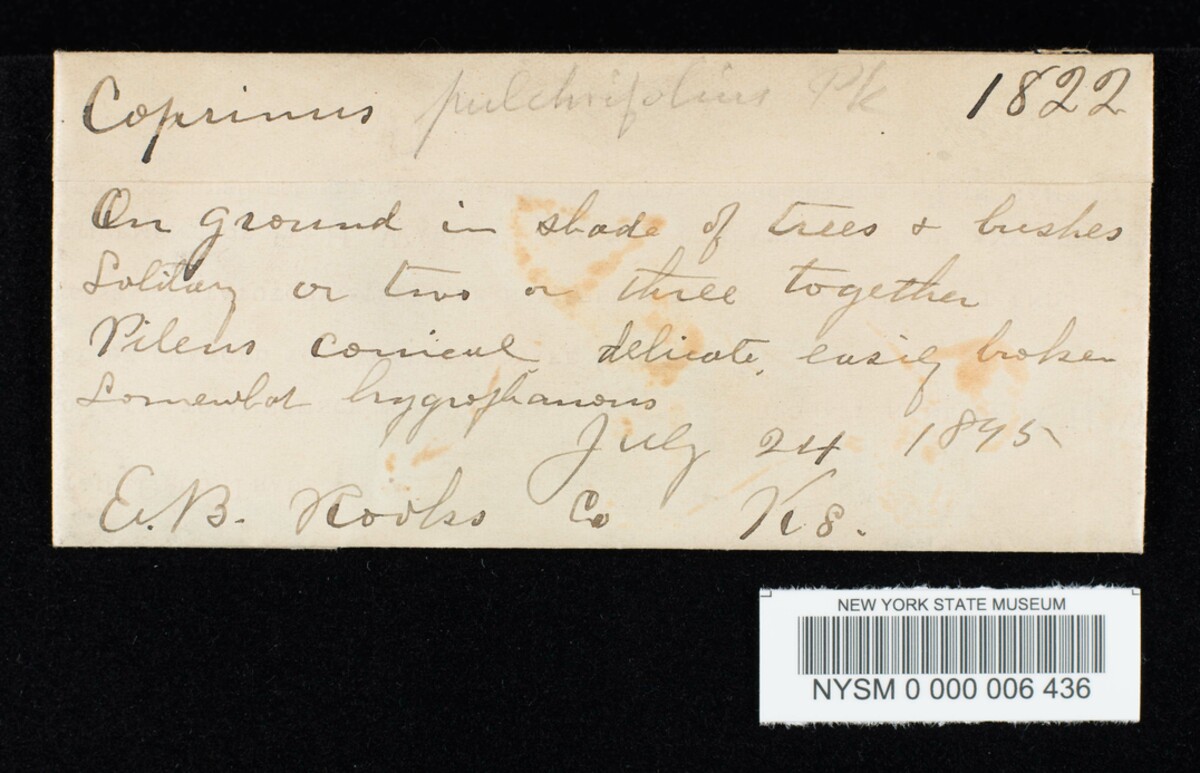 Coprinus pulchrifolius Pk 1822
On ground in shade of trees & bushes
Solitary or two or three together
Pileus conical delicate, easily broken
Somewhat hygrophanous
July 24 1895
E.B. Rooks Co Ks.
NEW YORK STATE MUSEUM
NYSM 0 000 006 436